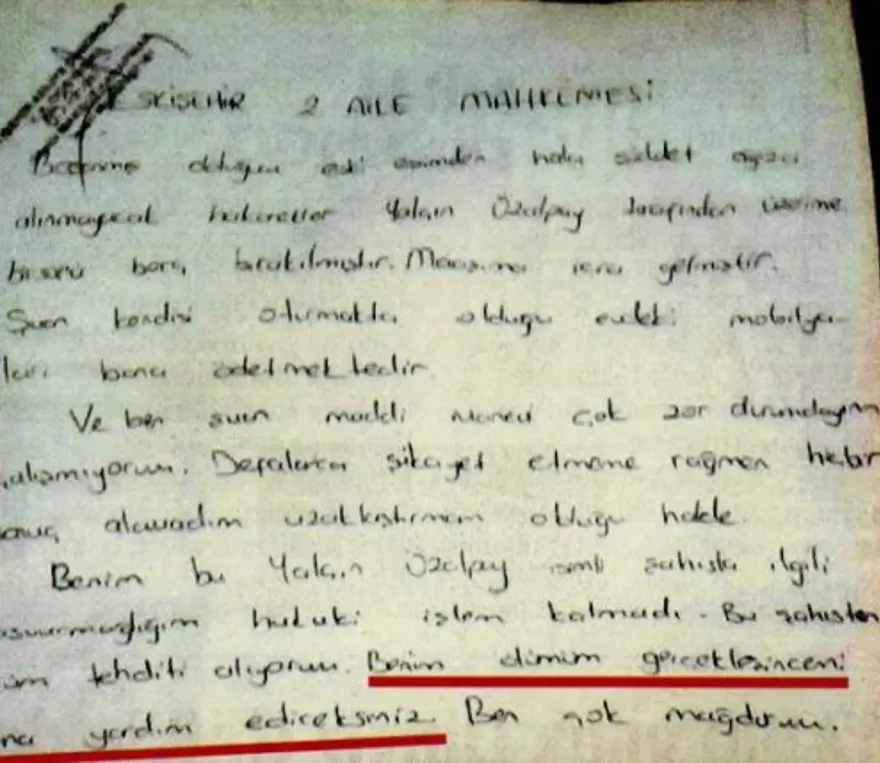 ESKİSEHİR 2 AİLE MAHKEMESİ
olduğum eski eşimden hala şiddet
alınmayacak hakaretler Yalçın Özalpay tarafından üzerime
bisürü borç bırakılmıştır. Maaşıma icra gelmiştir.
Şuan kendisi oturmakta olduğu evdeki mobilya-
ları bana ödetmektedir.
Ve ben şuan maddi manevi çok zor durumdayım
çalışmıyorum. Defalarca şikayet etmeme rağmen hebir
sonuç alamadım uzaklaştırmam olduğu halde.
Benim bu Yalçın Özalpay isimli şahısla ilgili
hukuki işlem kalmadı. Bu şahıstan
tehditi alıyorum. Benim ölümüm gerçekleşincemi
na yardım ediceksiniz. Ben çok mağdurum.